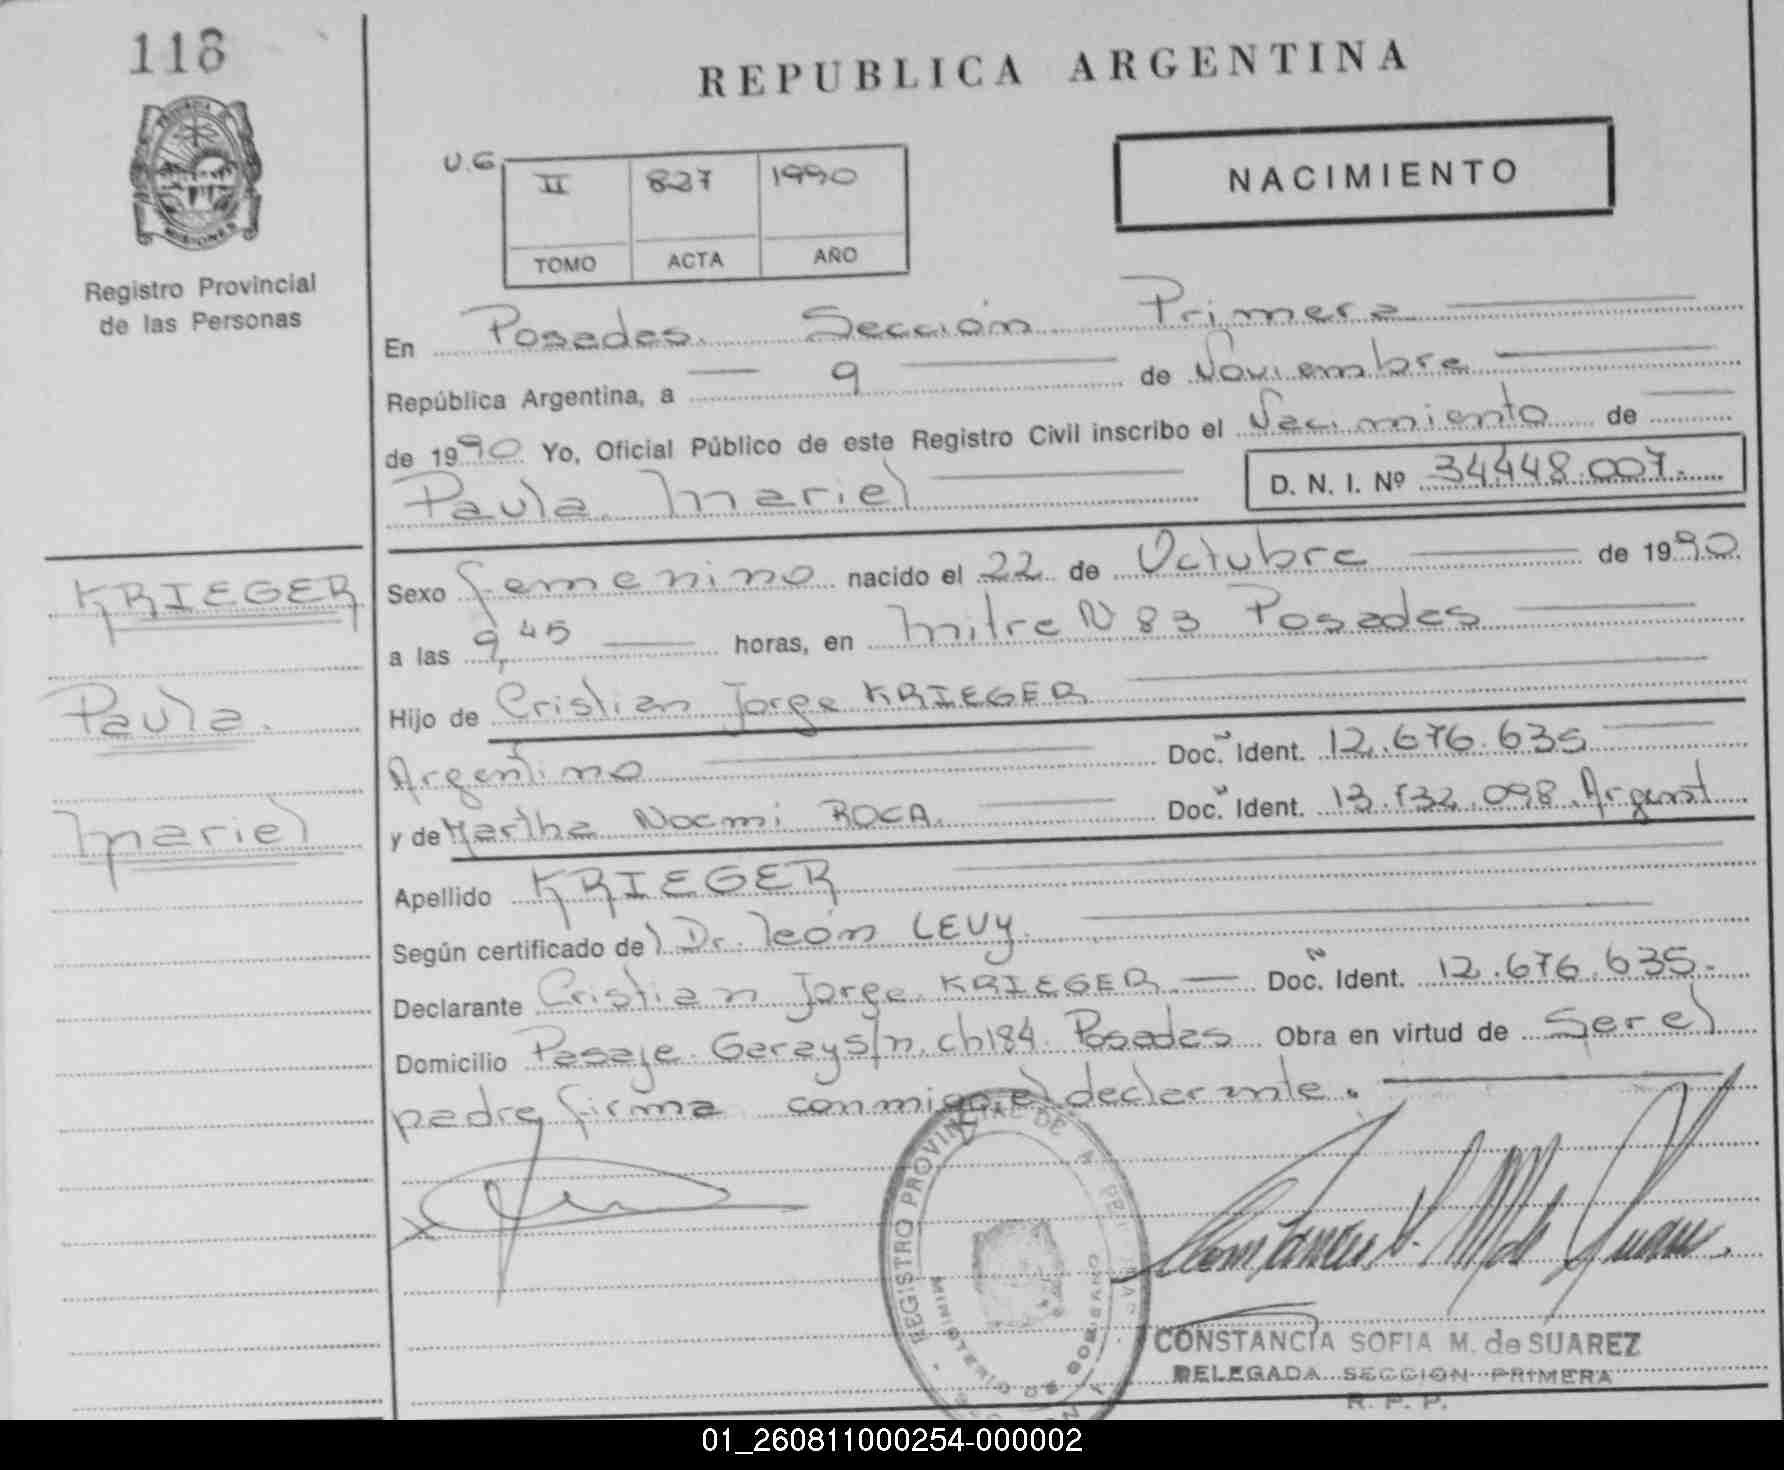 118
REPUBLICA ARGENTINA
NACIMIENTO
U.G
II 827 1990
TOMO ACTA AÑO
PROVINCIA
MISIONES
Registro Provincial
de las Personas
En Posadas. Sección Primera
República Argentina, a 9 de Noviembre
de 1990 Yo, Oficial Público de este Registro Civil inscribo el Nacimiento de
Paula Mariel D. N. I. Nº 34.448.007.
KRIEGER
Paula.
Mariel
Sexo femenino nacido el 22 de Octubre de 1990
a las 9,45 horas, en Mitre N 83 Posadas
Hijo de Cristian Jorge KRIEGER
Argentino Doc. Ident. 12.676.635
y de Martha Noemi ROCA. Doc. Ident. 13.732.098 Argent
Apellido KRIEGER
Según certificado del Dr. León LEVY.
Declarante Cristian Jorge KRIEGER Doc. Ident. 12.676.635.
Domicilio Pasaje Garay s/n. ch 184 Posadas Obra en virtud de Ser el
padre firma conmigo el declarante.
REGISTRO PROVINCIAL DE
MINISTERIO DE GOBIERNO
CONSTANCIA SOFIA M. de SUAREZ
DELEGADA SECCION PRIMERA
R. P. P.
01_260811000254-000002